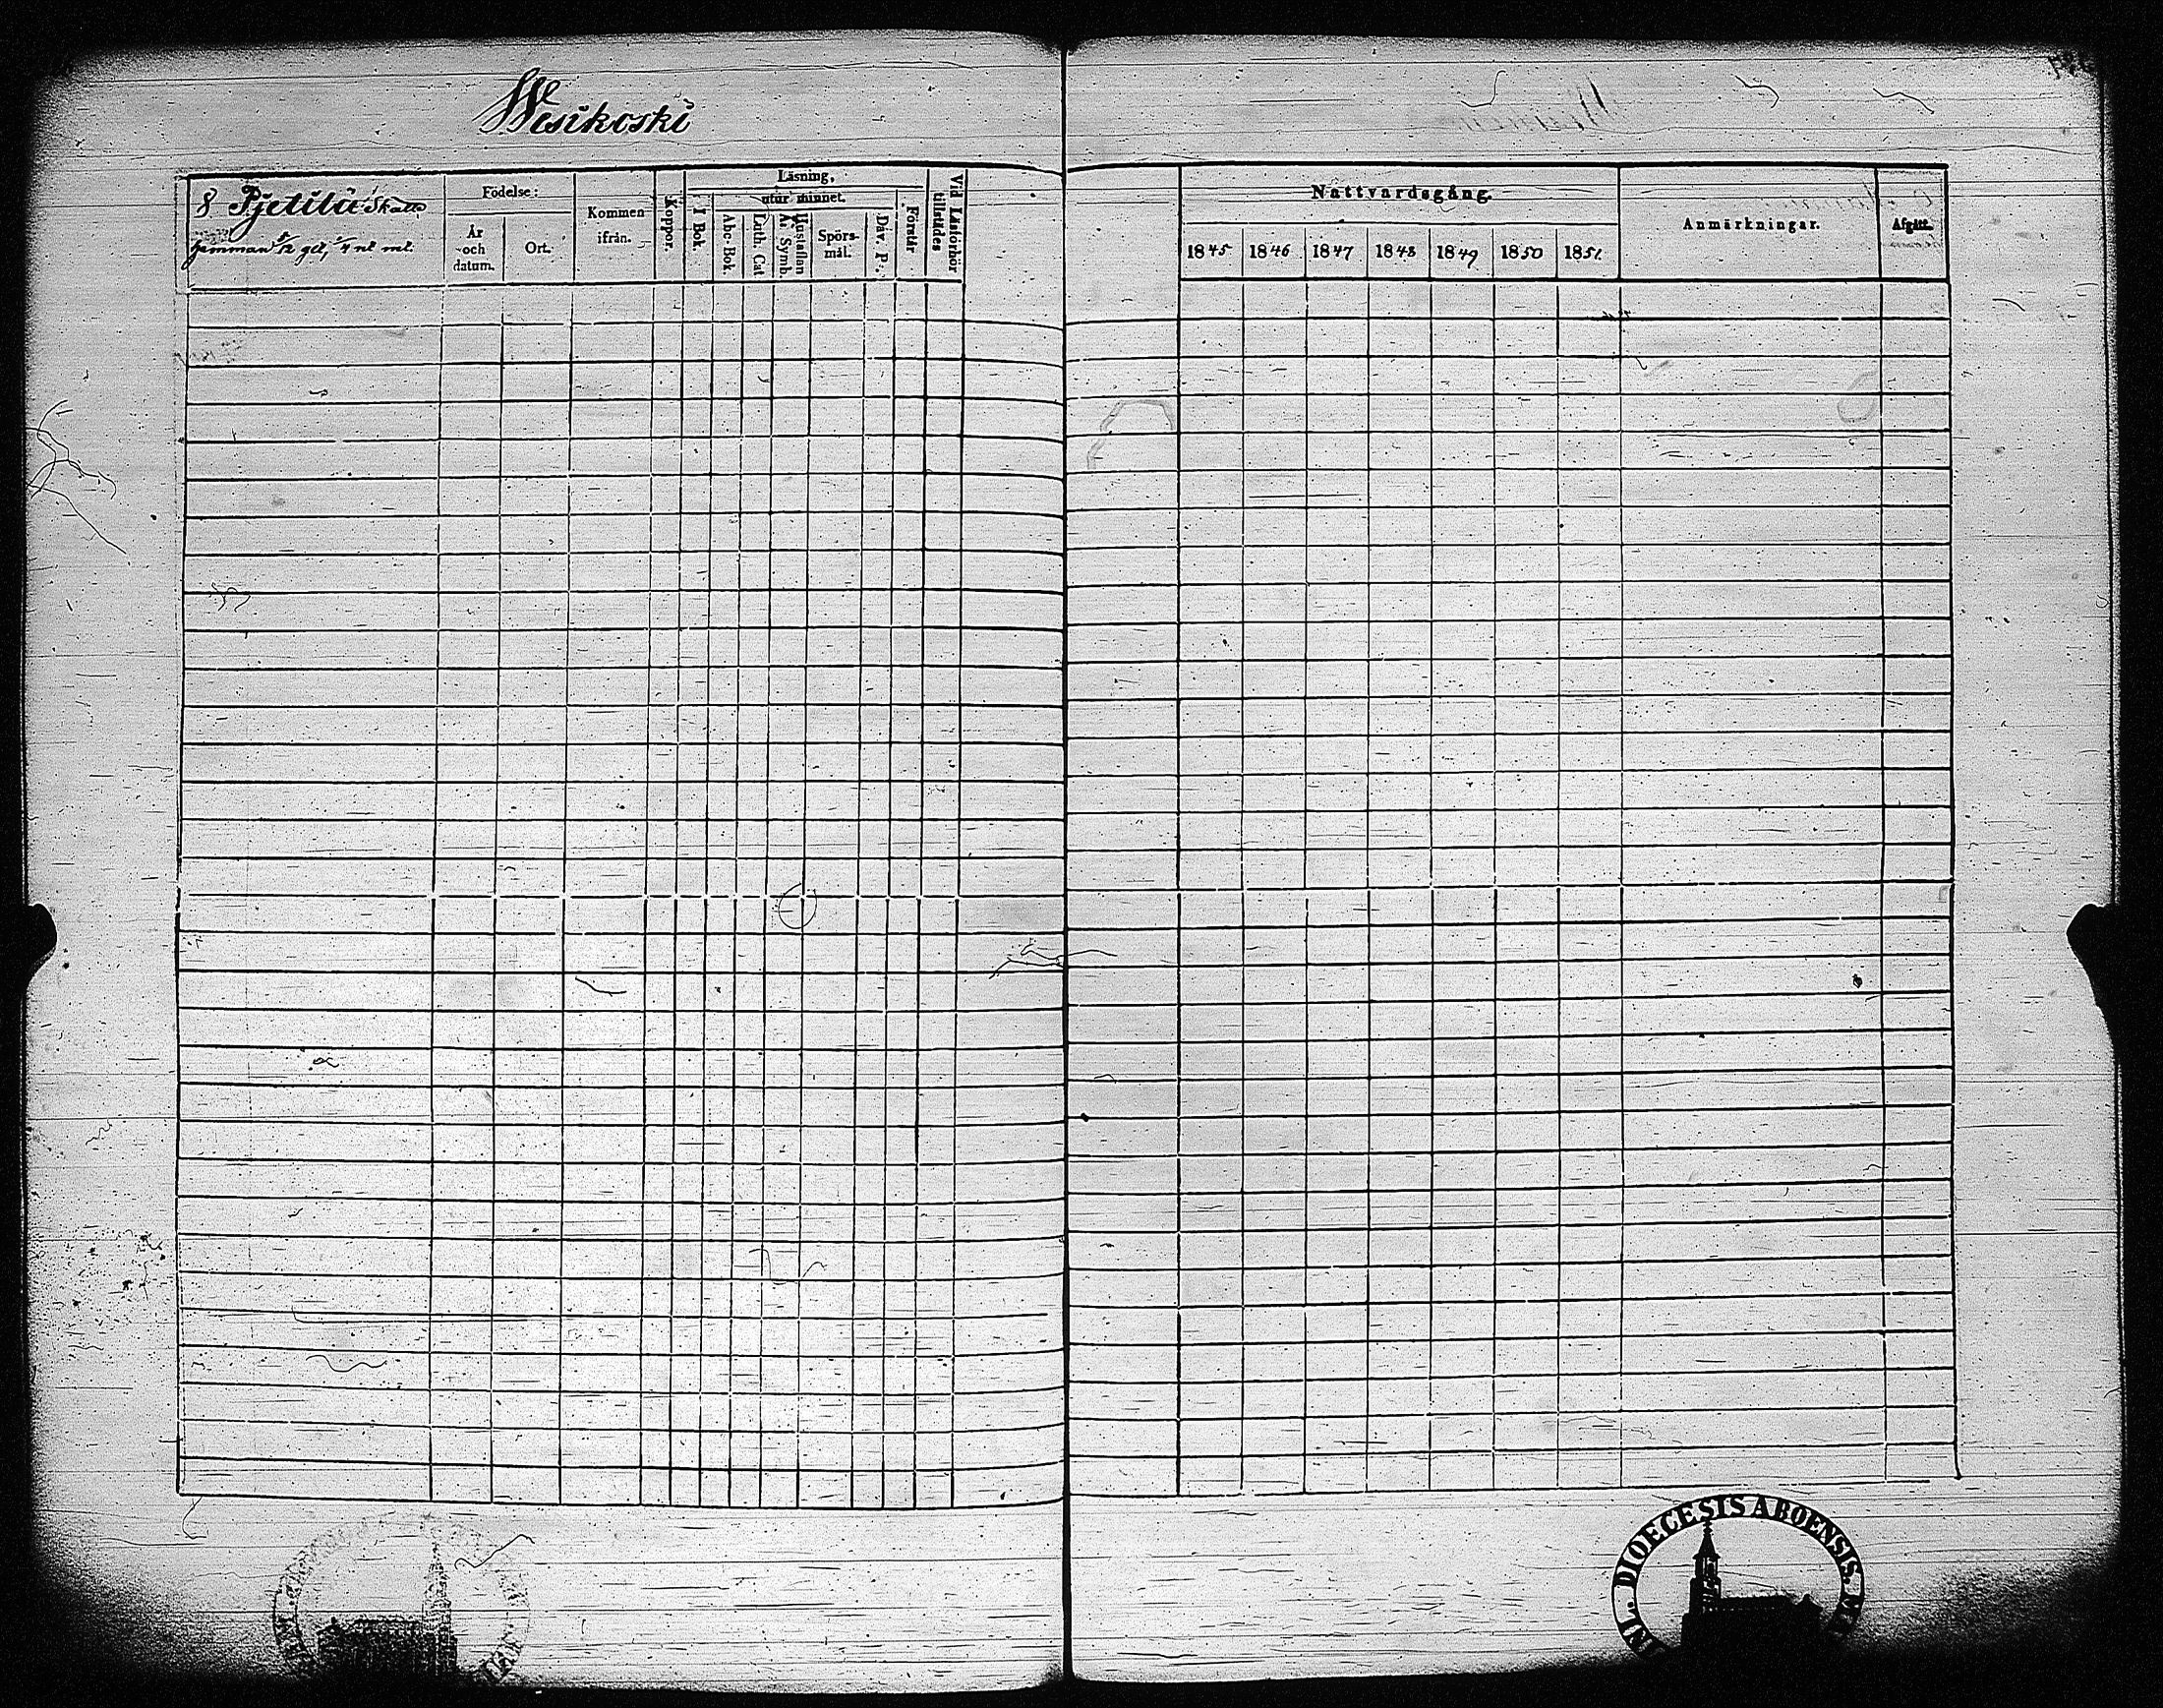 Wesikoski
8 Pjetilä Skatte
hemman 5/12 gel, 1/4 nt ml.
Födelse:
År och datum.
Ort.
Kommen ifrån.
Koppor.
Läsning,
utur minnet.
I Bok.
Abc-Bok
Luth. Cat
Hustaflan A. Symb.
Spörsmål.
Dav. P.
Förstår
Vid Läsförhör tillstädes
Nattvardsgång.
1845 1846 1847 1848 1849 1850 1851.
Anmärkningar.
Afgått.
DIOECESIS ABOENSIS.